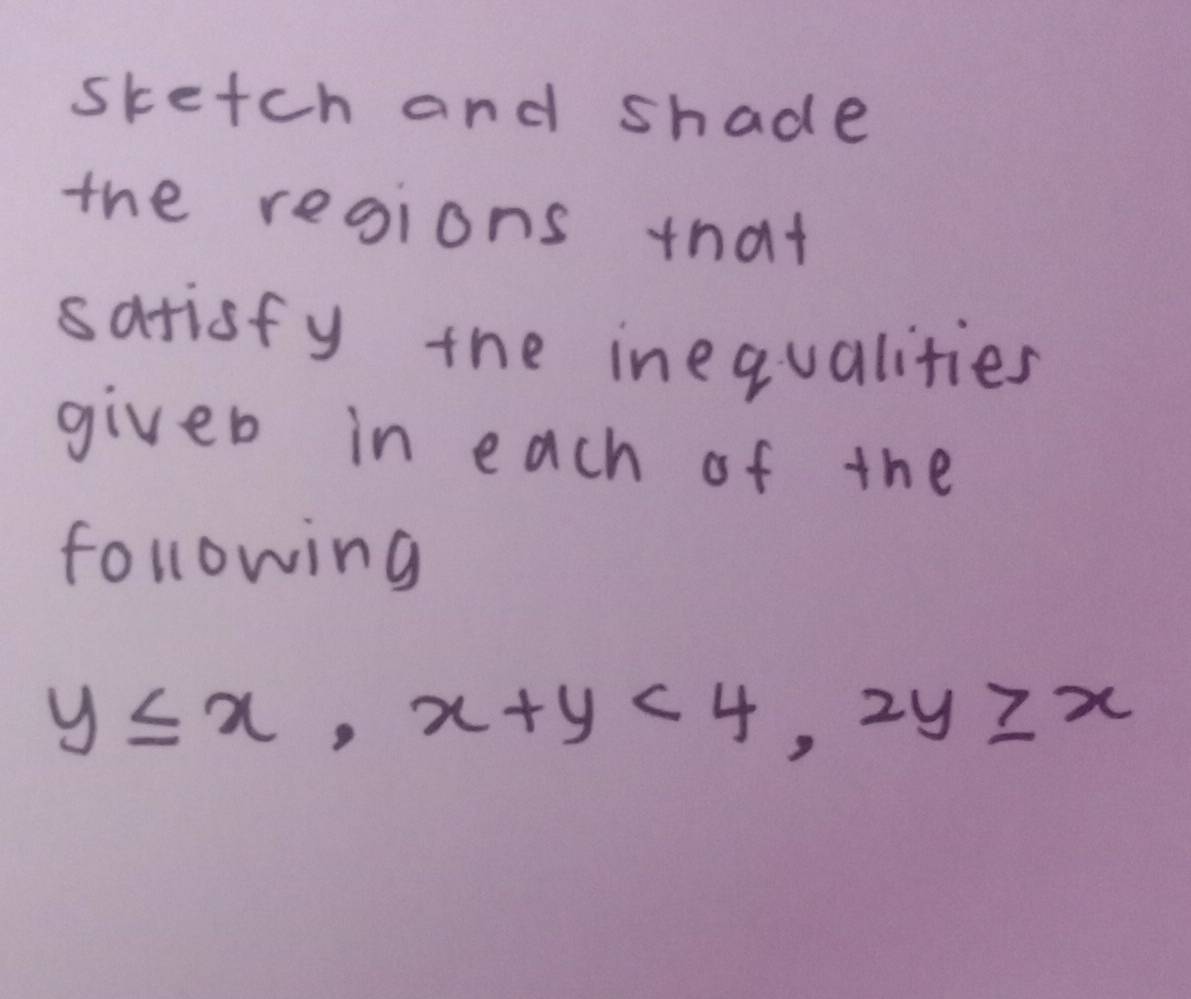 sketch and shade
the regions that
satisfy the inequalities
giveb in each of the
following
y ≤ x , x + y < 4 , 2y ≥ x